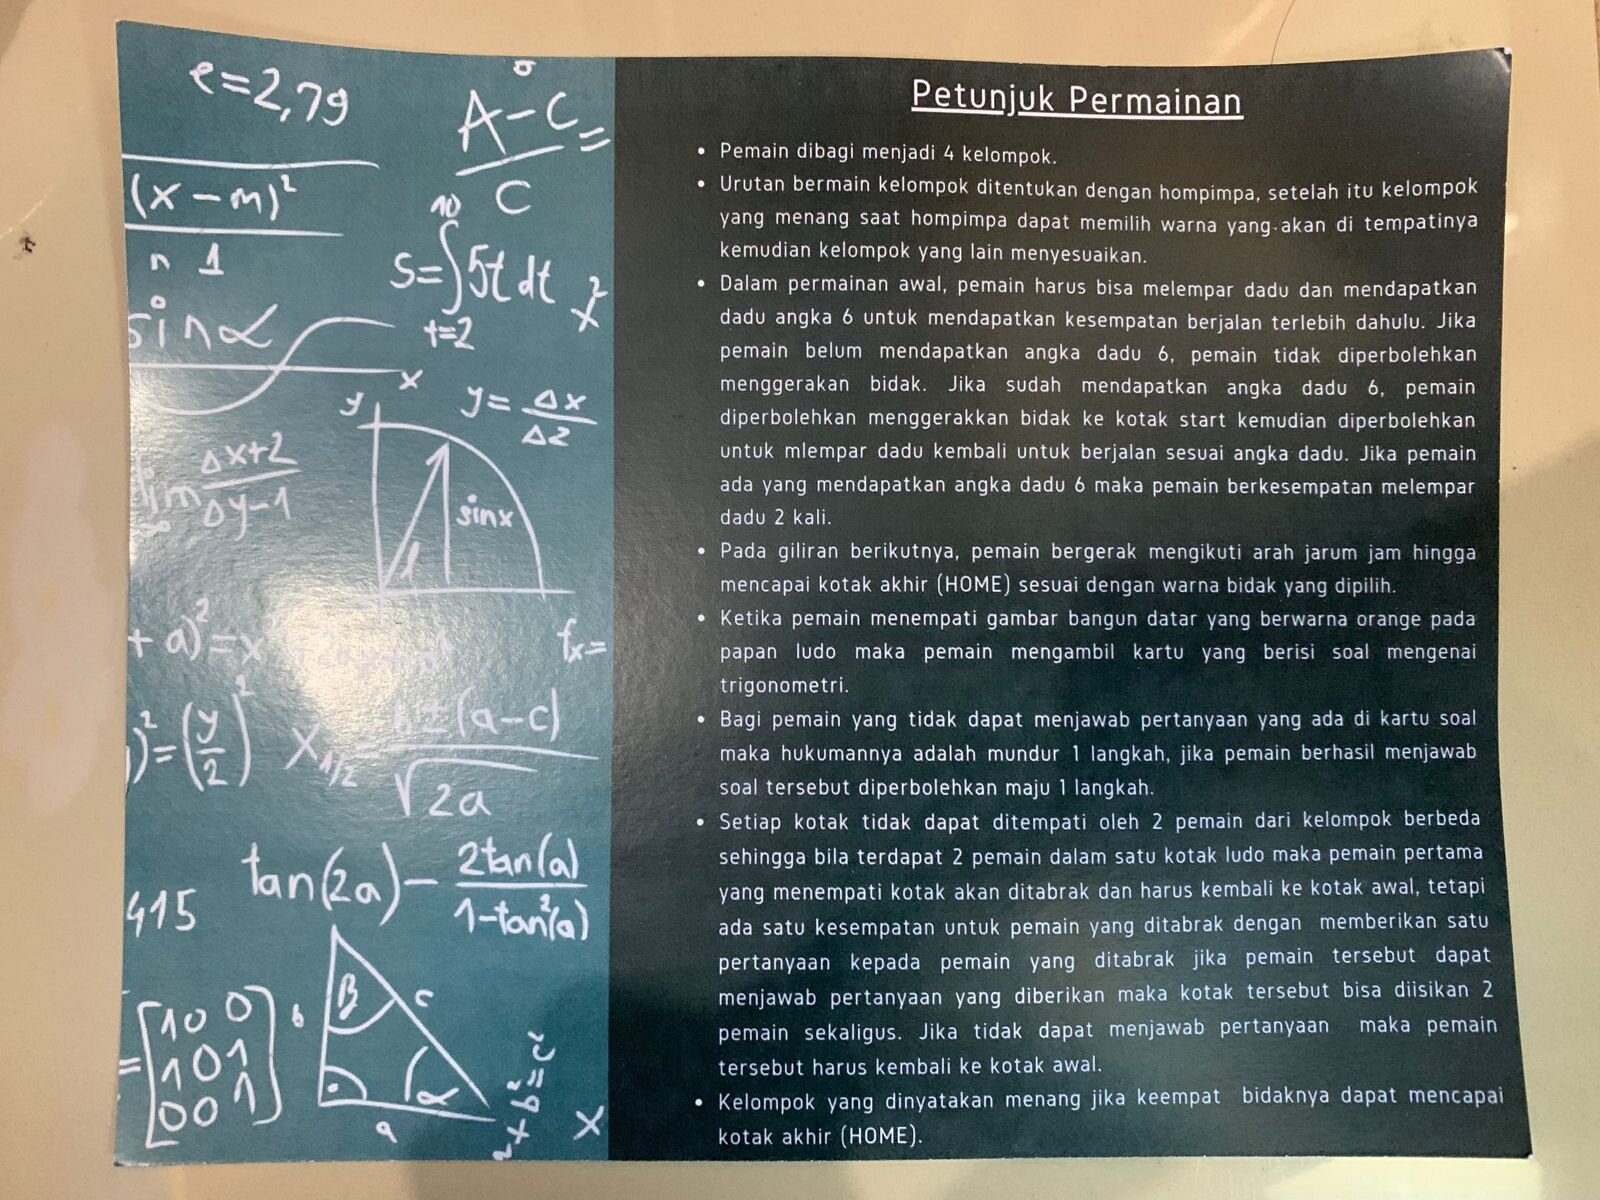 e=2,79
σ
A-C =
C
(x-m)²
n 1
10
S=∫5t dt
t=2
x²
sinα
x
y
y= Δx
Δz
lim Δx+2
∞ Δy-1
sinx
+ a)²=x
fx=
)²=(y/2)²
X1/2 = ±(a-c)
√2a
tan(2a)- 2tan(a)
1-tan²(a)
415
=[10 0
101
00 1]
b
β
c
α
a
+ b²=c²
x
Petunjuk Permainan
• Pemain dibagi menjadi 4 kelompok.
• Urutan bermain kelompok ditentukan dengan hompimpa, setelah itu kelompok
yang menang saat hompimpa dapat memilih warna yang akan di tempatinya
kemudian kelompok yang lain menyesuaikan.
• Dalam permainan awal, pemain harus bisa melempar dadu dan mendapatkan
dadu angka 6 untuk mendapatkan kesempatan berjalan terlebih dahulu. Jika
pemain belum mendapatkan angka dadu 6, pemain tidak diperbolehkan
menggerakan bidak. Jika sudah mendapatkan angka dadu 6, pemain
diperbolehkan menggerakkan bidak ke kotak start kemudian diperbolehkan
untuk mlempar dadu kembali untuk berjalan sesuai angka dadu. Jika pemain
ada yang mendapatkan angka dadu 6 maka pemain berkesempatan melempar
dadu 2 kali.
• Pada giliran berikutnya, pemain bergerak mengikuti arah jarum jam hingga
mencapai kotak akhir (HOME) sesuai dengan warna bidak yang dipilih.
• Ketika pemain menempati gambar bangun datar yang berwarna orange pada
papan ludo maka pemain mengambil kartu yang berisi soal mengenai
trigonometri.
• Bagi pemain yang tidak dapat menjawab pertanyaan yang ada di kartu soal
maka hukumannya adalah mundur 1 langkah, jika pemain berhasil menjawab
soal tersebut diperbolehkan maju 1 langkah.
• Setiap kotak tidak dapat ditempati oleh 2 pemain dari kelompok berbeda
sehingga bila terdapat 2 pemain dalam satu kotak ludo maka pemain pertama
yang menempati kotak akan ditabrak dan harus kembali ke kotak awal, tetapi
ada satu kesempatan untuk pemain yang ditabrak dengan memberikan satu
pertanyaan kepada pemain yang ditabrak jika pemain tersebut dapat
menjawab pertanyaan yang diberikan maka kotak tersebut bisa diisikan 2
pemain sekaligus. Jika tidak dapat menjawab pertanyaan maka pemain
tersebut harus kembali ke kotak awal.
• Kelompok yang dinyatakan menang jika keempat bidaknya dapat mencapai
kotak akhir (HOME).